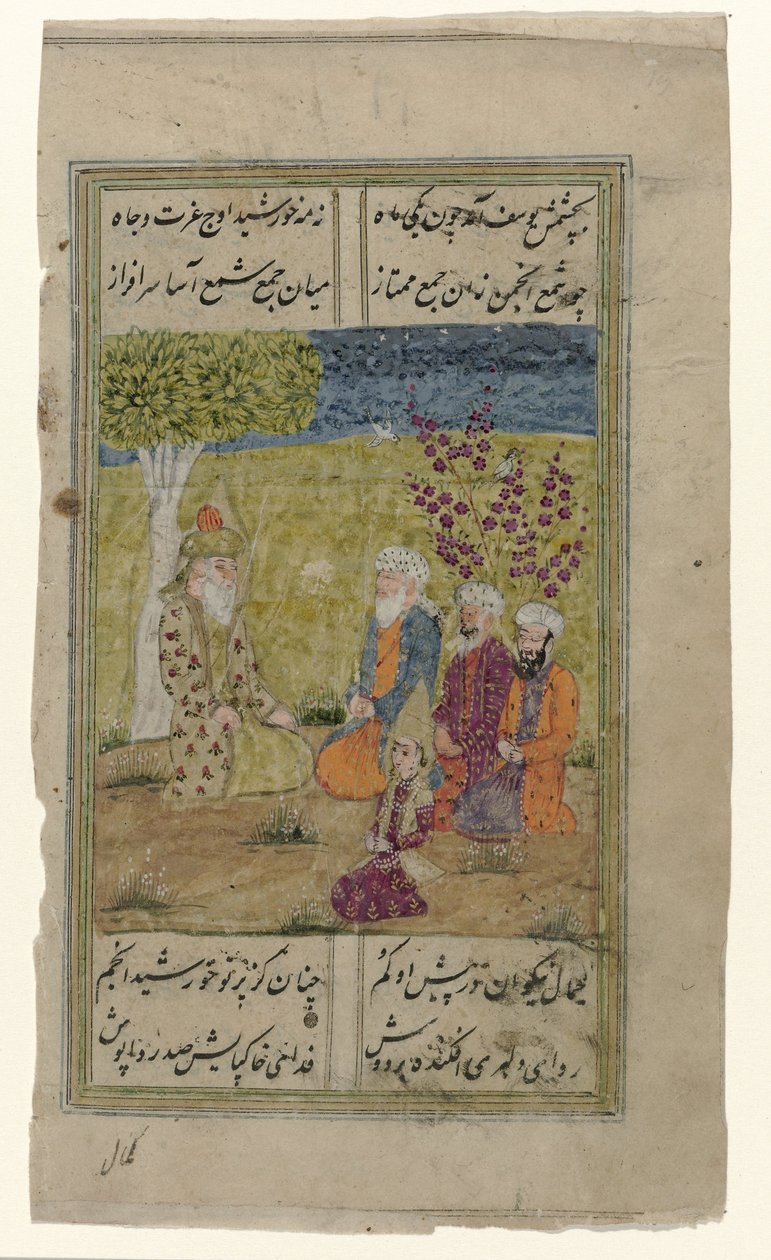 بچشمش یوسف آمد چون یکی ماه نه مه خورشید اوج عزت و جاه
چو شمع انجمن زان جمع ممتاز میان جمع شمع آسا سرافراز
جمال نیکوان در پیش او گم چنان کز پرتو خورشید انجم
ردای دلبری افکنده بر دوش فدای خاکپایش صد رداپوش
کمال